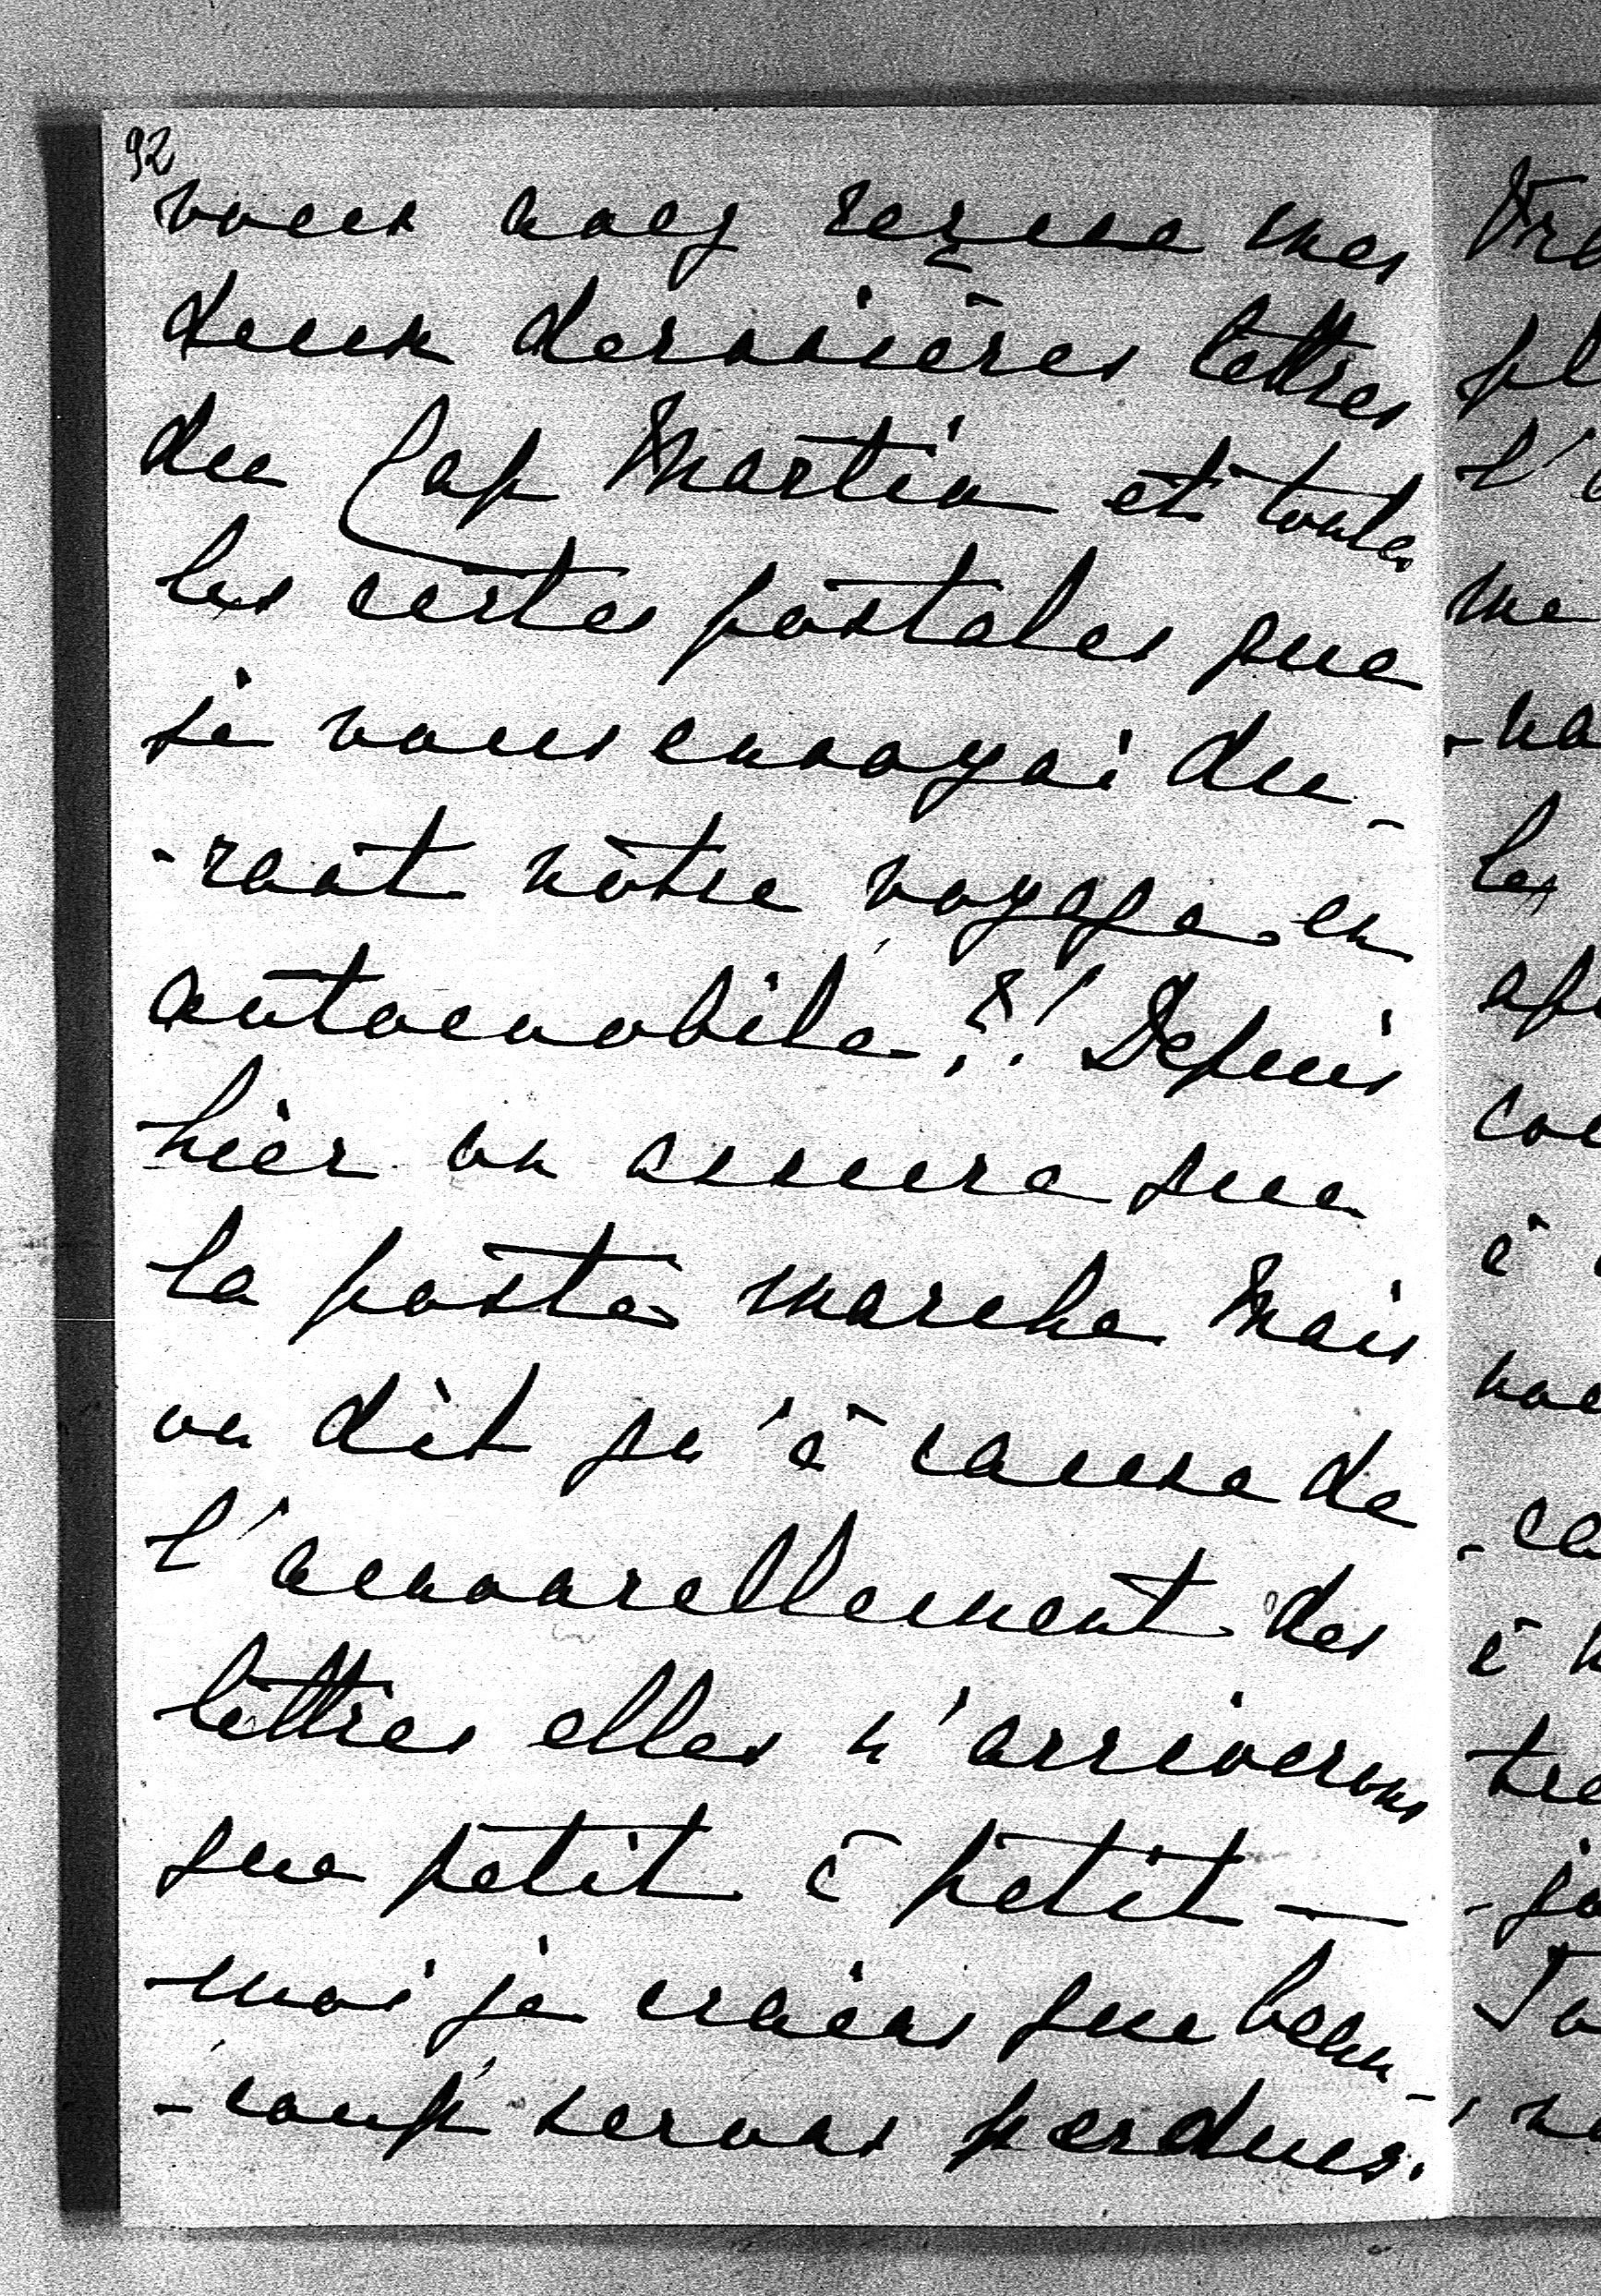 92
vous avez reçues mes
deux dernières lettres
du Cap Martin et toutes
les cartes postales que
je vous envoyai du-
-rant nôtre voyage en
automobile?! Depuis
hier on assure que
la poste marche Mais
on dit qu'à cause de
l'amonrellement des
lettres elles n'arriverons
que petit à petit —
moi je crains que beau-
-coup serons perdues.